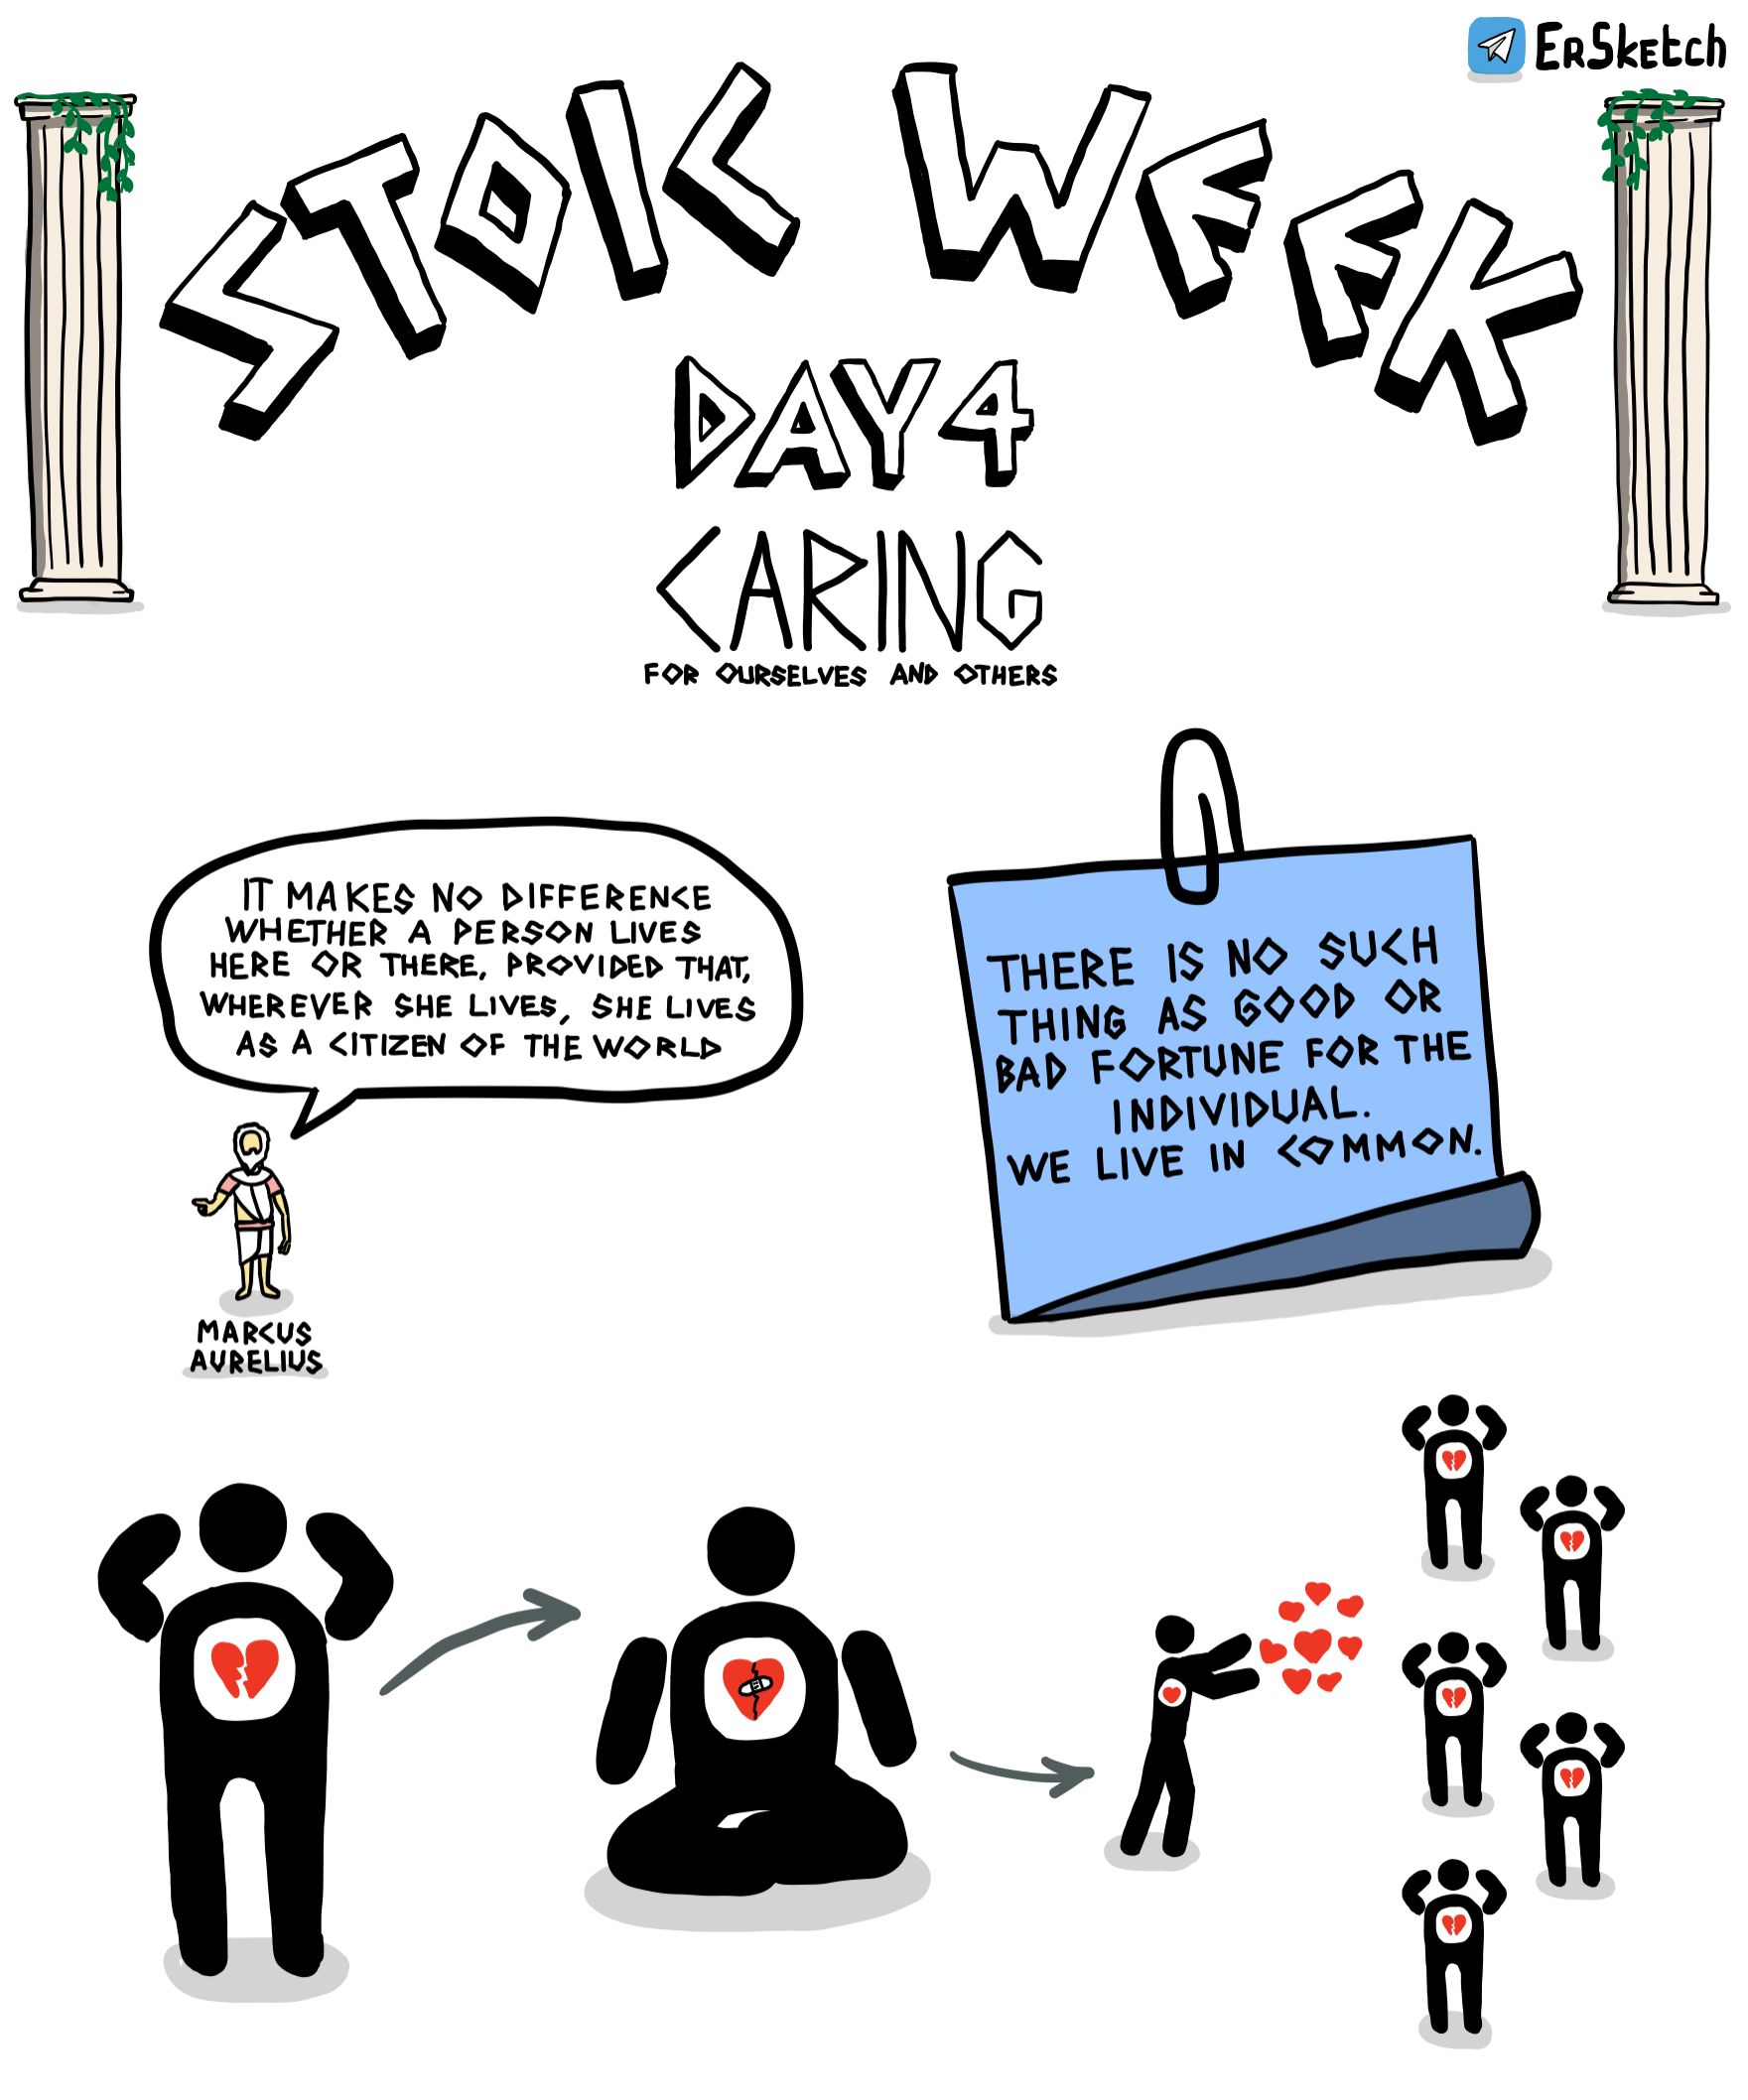 ErSketch
STOIC WEEK
DAY 4
CARING
FOR OURSELVES AND OTHERS
IT MAKES NO DIFFERENCE
WHETHER A PERSON LIVES
HERE OR THERE, PROVIDED THAT,
WHEREVER SHE LIVES, SHE LIVES
AS A CITIZEN OF THE WORLD
MARCUS
AURELIUS
THERE IS NO SUCH
THING AS GOOD OR
BAD FORTUNE FOR THE
INDIVIDUAL.
WE LIVE IN COMMON.